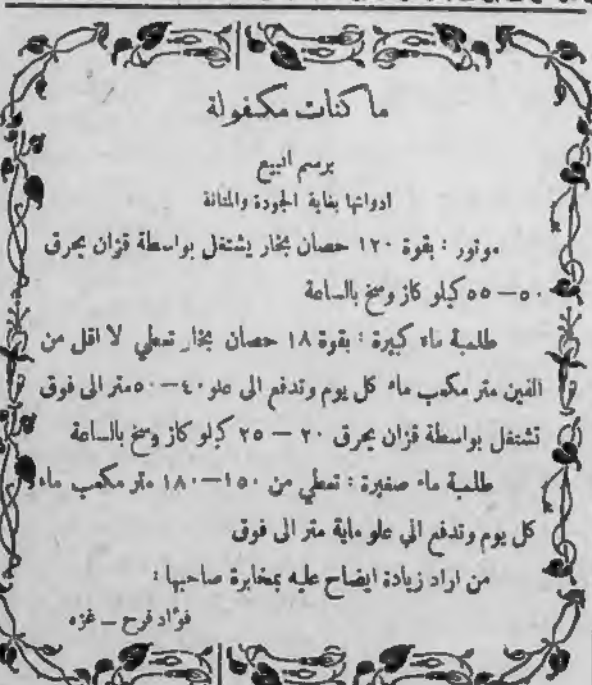 ماكنات مكفولة
برسم البيع
ادواتها بغاية الجودة والمتانة
موتور : بقوة ١٢٠ حصان بخار يشتغل بواسطة قزان يحرق
٥٠ — ٥٥ كيلو كاز وسخ بالساعة
طلمبة ماء كبيرة : بقوة ١٨ حصان بخار تعطي لا اقل من
الفين متر مكعب ماء كل يوم وتدفع الى علو ٤٠ — ٥٠ متر الى فوق
تشتغل بواسطة قزان يحرق ٢٠ — ٢٥ كيلو كاز وسخ بالساعة
طلمبة ماء صغيرة : تعطي من ١٥٠ — ١٨٠ متر مكعب ماء
كل يوم وتدفع الى علو ماية متر الى فوق
من اراد زيادة ايضاح عليه بمخابرة صاحبها :
فؤاد فرح — غزه